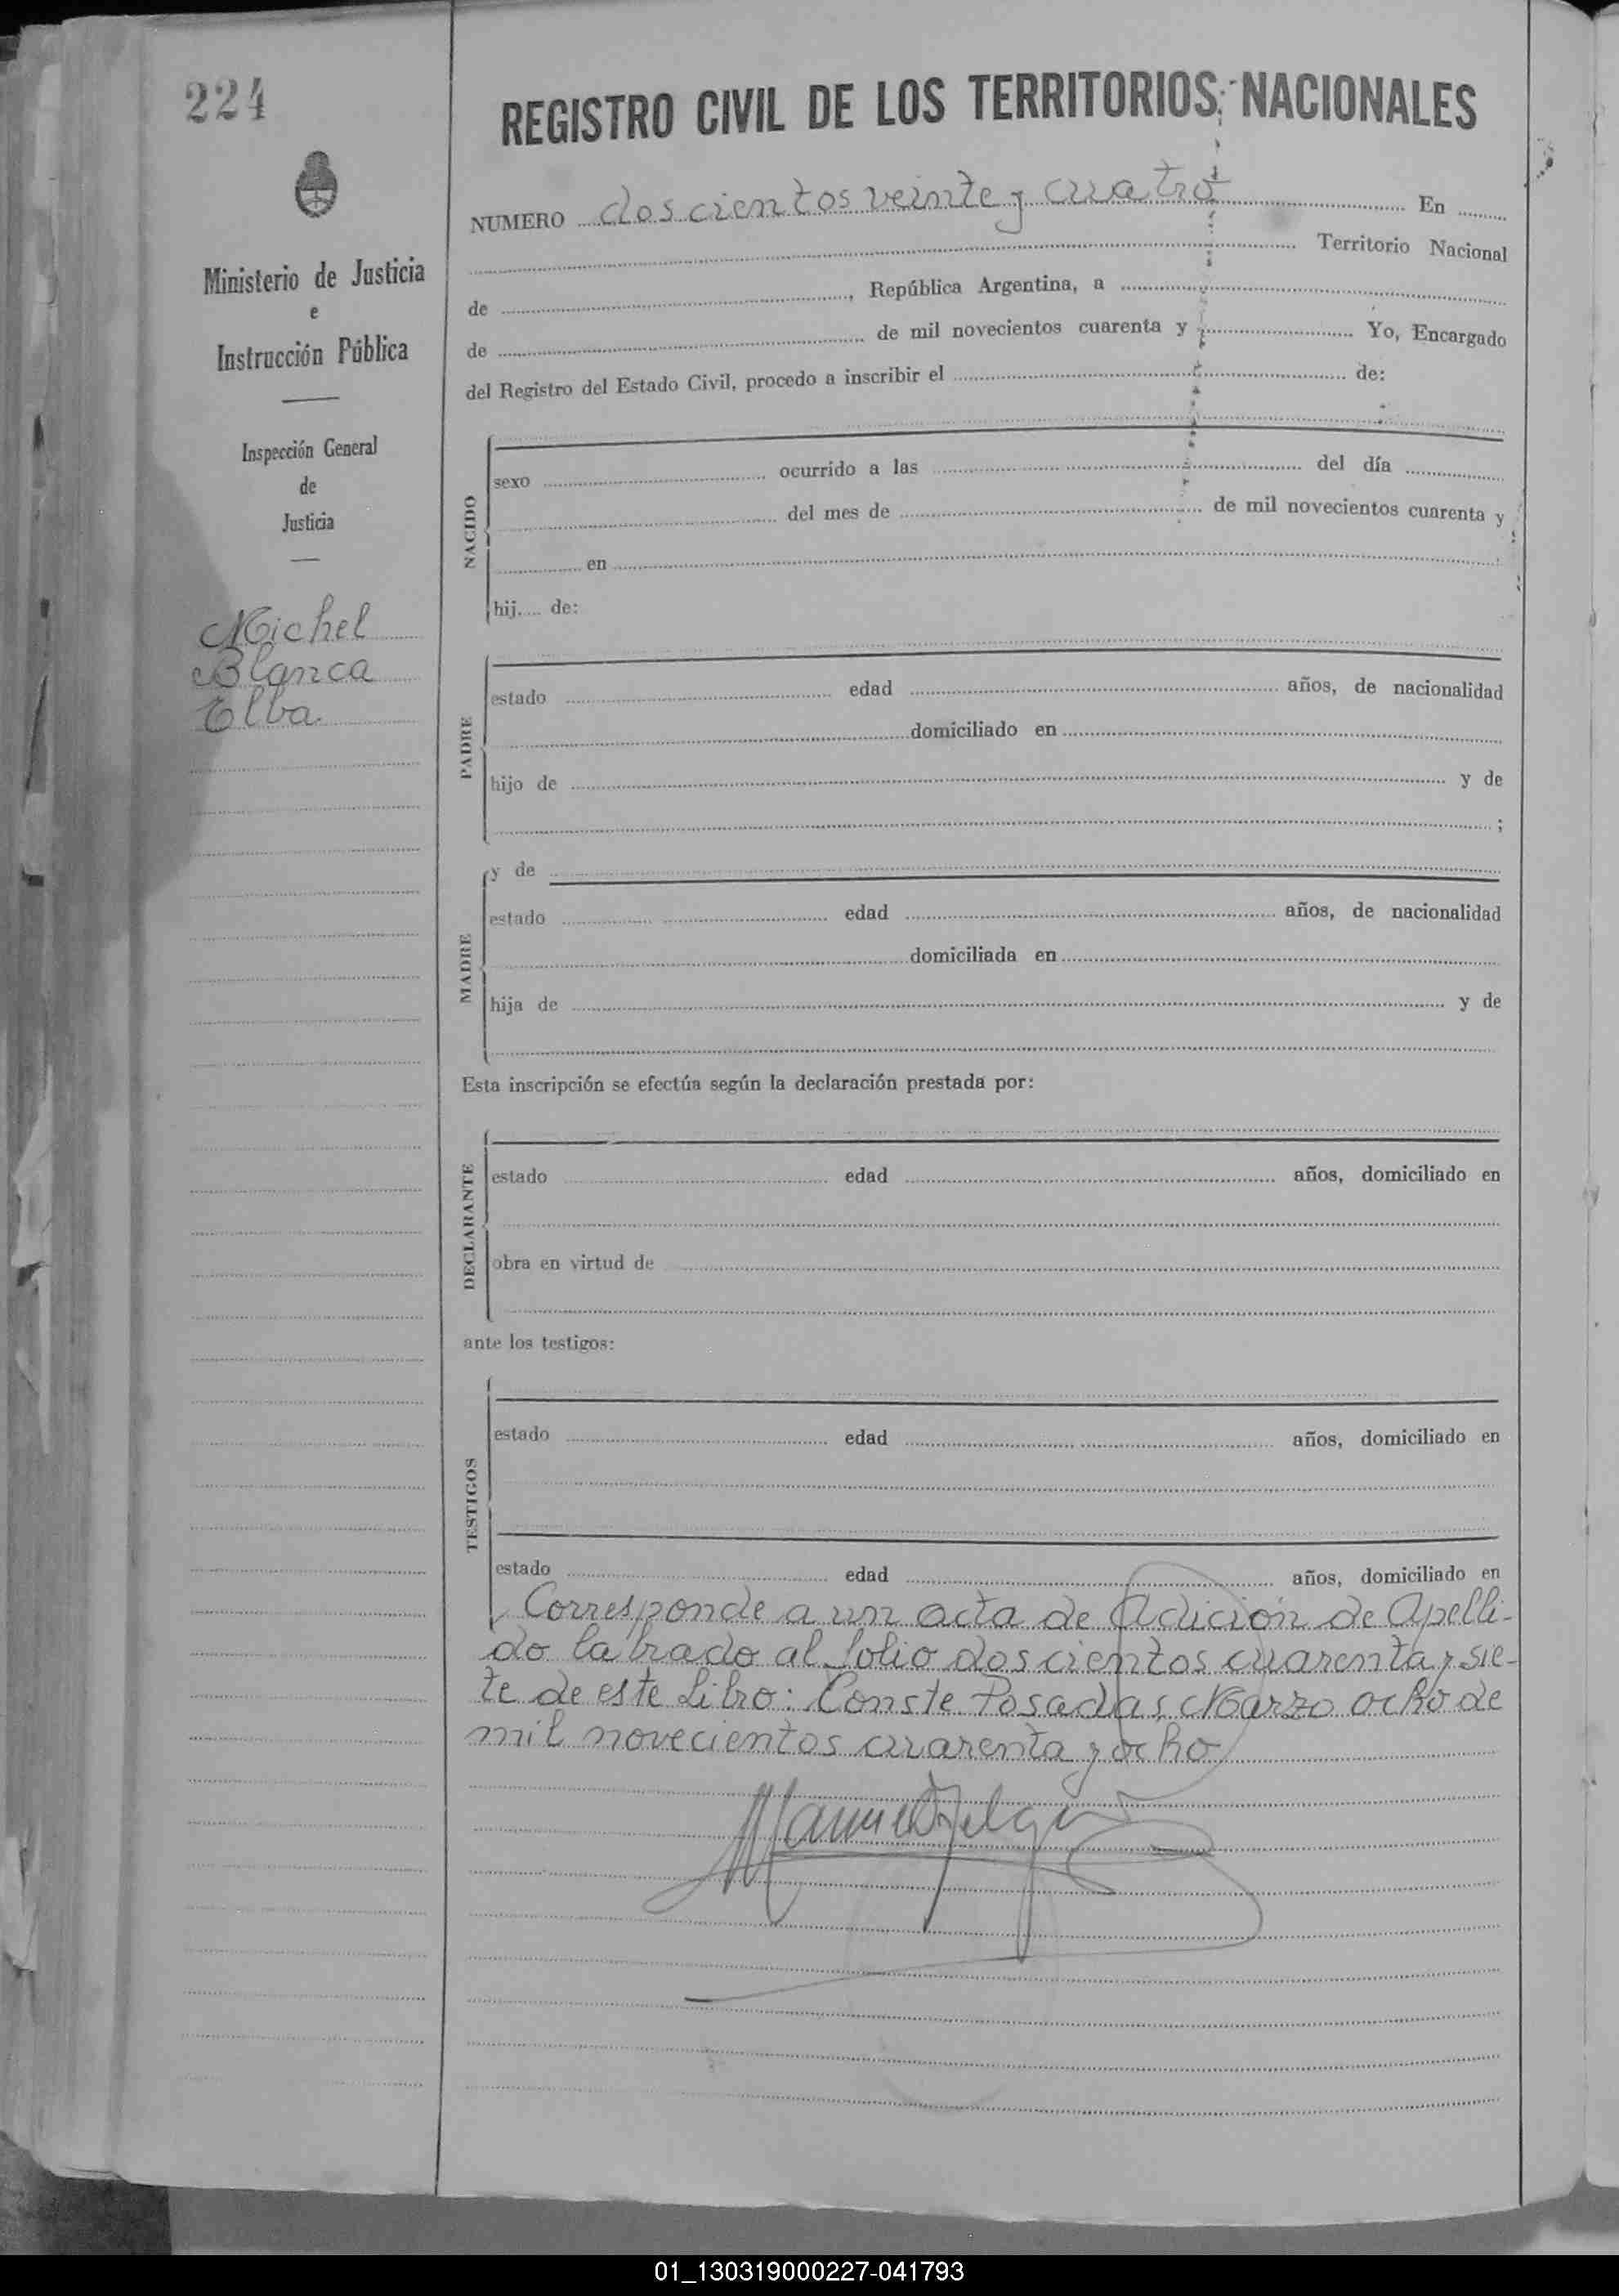 224
Ministerio de Justicia
e
Instrucción Pública
Inspección General
de
Justicia
Michel
Blanca
Elba.
REGISTRO CIVIL DE LOS TERRITORIOS NACIONALES
NUMERO doscientos veinte y cuatro En
Territorio Nacional
de , República Argentina, a
de de mil novecientos cuarenta y Yo, Encargado
del Registro del Estado Civil, procedo a inscribir el de:
NACIDO
sexo ocurrido a las del día
del mes de de mil novecientos cuarenta y
en
hij.... de:
PADRE
estado edad años, de nacionalidad
domiciliado en
hijo de y de
;
MADRE
y de
estado edad años, de nacionalidad
domiciliada en
hija de y de
Esta inscripción se efectúa según la declaración prestada por:
DECLARANTE
estado edad años, domiciliado en
obra en virtud de
ante los testigos:
TESTIGOS
estado edad años, domiciliado en
estado edad años, domiciliado en
Corresponde a un acta de Adición de Apelli-
do labrado al folio doscientos cuarenta y sie-
te de este Libro: Conste Posadas, Marzo ocho de
mil novecientos cuarenta y ocho
01_130319000227-041793